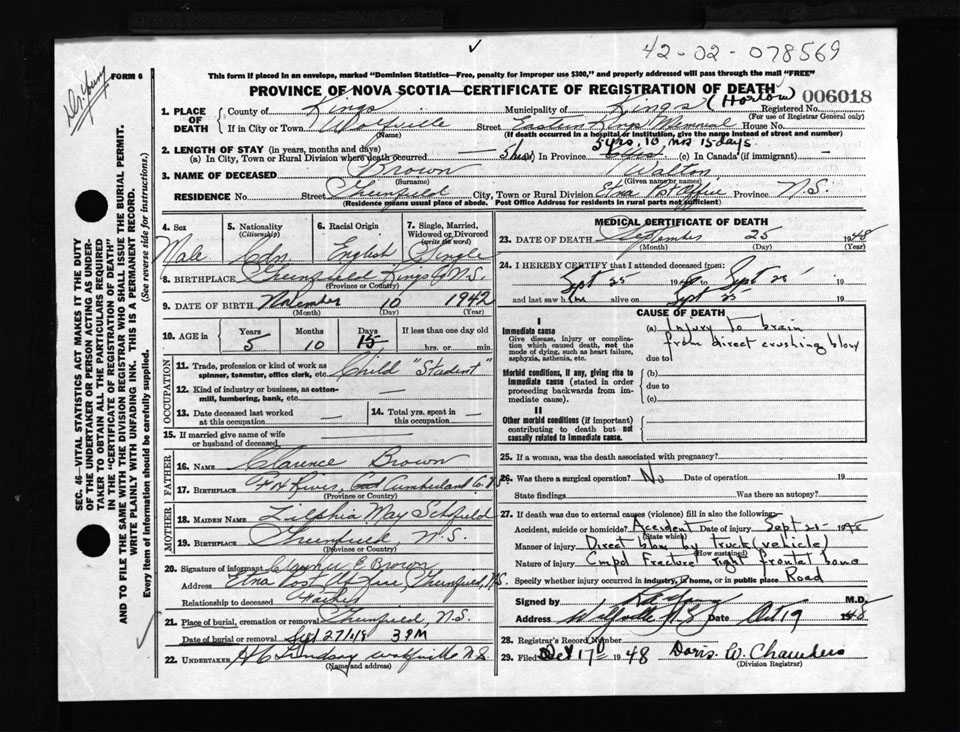 42-02-078569
Dr. Young
FORM 6
This form if placed in an envelope, marked "Dominion Statistics—Free, penalty for improper use $300," and properly addressed will pass through the mail "FREE"
PROVINCE OF NOVA SCOTIA—CERTIFICATE OF REGISTRATION OF DEATH
006018
1. PLACE OF DEATH County of Kings Municipality of Kings (Horton) Registered No.
(For use of Registrar General only)
If in City or Town Wolfville Street Eastern Kings Memorial House No.
(Name) (If death occurred in a hospital or institution, give the name instead of street and number)
5 yrs, 10 mos 15 days
2. LENGTH OF STAY (in years, months and days)
(a) In City, Town or Rural Division where death occurred — (b) In Province (c) In Canada (if immigrant) —
3. NAME OF DECEASED Brown Walton
(Surname) (Given name or names)
RESIDENCE No. Street Greenfield City, Town or Rural Division Etna Post Office Province N.S.
(Residence means usual place of abode. Post Office Address for residents in rural parts not sufficient)
4. Sex Male
5. Nationality (Citizenship) Cdn.
6. Racial Origin English
7. Single, Married, Widowed or Divorced (write the word) Single
8. BIRTHPLACE Greenfield Kings Co N.S.
(Province or Country)
9. DATE OF BIRTH November 10 1942
(Month) (Day) (Year)
10. AGE in Years 5 Months 10 Days 15 If less than one day old hrs. or min.
OCCUPATION
11. Trade, profession or kind of work as spinner, teamster, office clerk, etc. Child "Student"
12. Kind of industry or business, as cotton-mill, lumbering, bank, etc. —
13. Date deceased last worked at this occupation —
14. Total yrs. spent in this occupation —
15. If married give name of wife or husband of deceased
FATHER
16. NAME Clarence Brown
17. BIRTHPLACE River, Cumberland Co.
(Province or Country)
MOTHER
18. MAIDEN NAME Zilphia May Schofield
19. BIRTHPLACE Greenfield, N.S.
(Province or Country)
20. Signature of informant Clarence E Brown
Address Etna Post Office, Greenfield, N.S.
Relationship to deceased Father
21. Place of burial, cremation or removal Greenfield, N.S.
Date of burial or removal Sept 27/48 3 PM
22. UNDERTAKER H C Lindsay Wolfville N.S.
(Name and address)
MEDICAL CERTIFICATE OF DEATH
23. DATE OF DEATH September 25 1948
(Month) (Day) (Year)
24. I HEREBY CERTIFY that I attended deceased from:
Sept 25 1948 to Sept 25 19
and last saw him alive on Sept 25 19
CAUSE OF DEATH
I
Immediate cause
Give disease, injury or complication which caused death, not the mode of dying, such as heart failure, asphyxia, asthenia, etc.
(a) Injury to brain from direct crushing blow
due to
Morbid conditions, if any, giving rise to immediate cause (stated in order proceeding backwards from immediate cause).
(b)
due to
(c)
II
Other morbid conditions (if important) contributing to death but not causally related to immediate cause.
25. If a woman, was the death associated with pregnancy?
26. Was there a surgical operation? No Date of operation 19
State findings Was there an autopsy?
27. If death was due to external causes (violence) fill in also the following:
Accident, suicide or homicide? Accident Date of injury Sept 25 1948
(State which)
Manner of injury Direct blow by truck (vehicle)
(How sustained)
Nature of injury Cmpd Fracture right frontal bone
Specify whether injury occurred in industry, in home, or in public place Road
Signed by M.D.
Address Wolfville N.S. Date Oct 19 1948
28. Registrar's Record Number
29. Filed 17 1948 Doris W. Chambers
(Division Registrar)
SEC. 46—VITAL STATISTICS ACT MAKES IT THE DUTY OF THE UNDERTAKER OR PERSON ACTING AS UNDERTAKER TO OBTAIN ALL THE PARTICULARS REQUIRED IN THE "CERTIFICATE OF REGISTRATION OF DEATH" AND TO FILE THE SAME WITH THE DIVISION REGISTRAR WHO SHALL ISSUE THE BURIAL PERMIT.
WRITE PLAINLY WITH UNFADING INK. THIS IS A PERMANENT RECORD.
Every item of information should be carefully supplied. (See reverse side for instructions.)